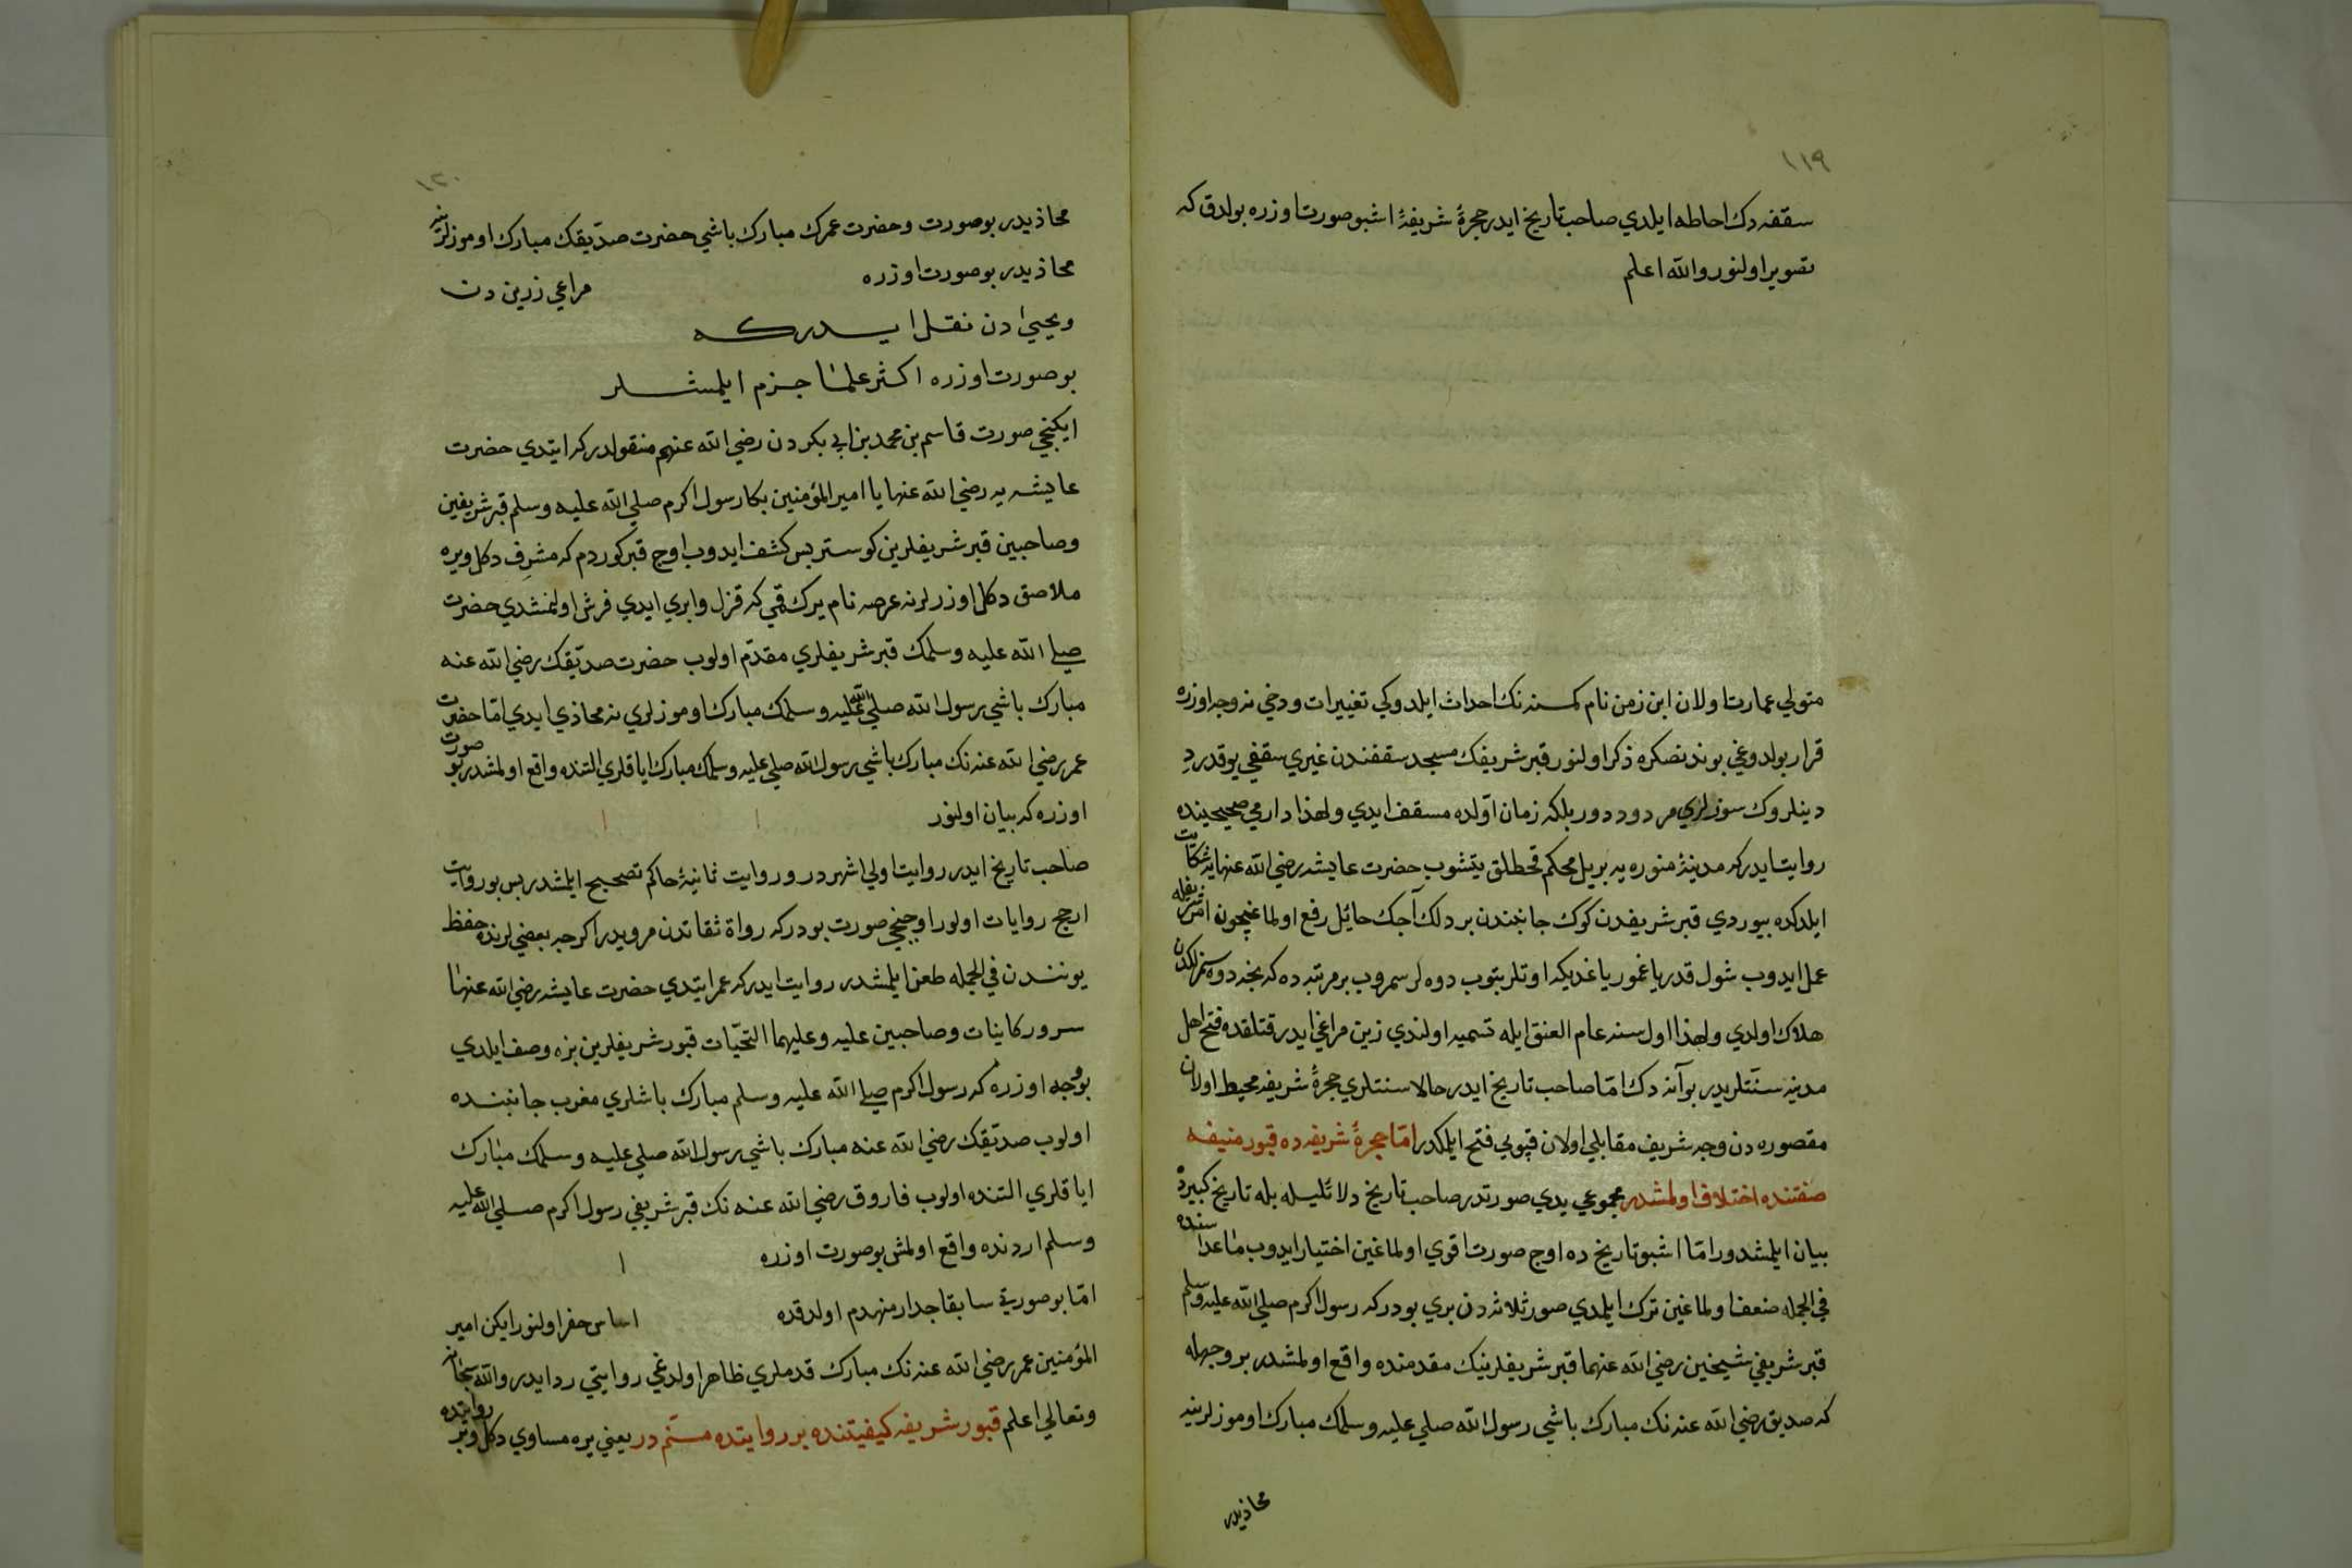 ١١٩
سقفه دك احاطه ايلدي صاحب تاريخ ايدر حجرۀ شريفۀ اشبو صورت اوزره بولدق كه
تصوير اولنور والله اعلم
متولي عمارت اولان ابن زمن نام كمسنه نك احداث ايلدوكي تغييرات ودخي نه وجه اوزره
قرار بولدوغي بوندنصكره ذكر اولنور قبر شريفك مسجد سقفندن غيري سقفي يوقدر دِ
دينلروك سوزلري مردود دور بلكه زمان اوّلده مسقف ايدي ولهذا دارمي صحيحينده
روايت ايدر كه مدينۀ منوره يه بر يل محكم قحطلق يتشوب حضرت عايشه رضي الله عنهايه شكايت
ايلدكده بيوردي قبر شريفدن كوك جانبندن بر دلك آچك حائل رفع اولماغيچون امر شريفله
عمل ايدوب شول قدر ياغمور ياغديكه اوتلر بتوب دوه لر سمروب بر مرتبه ده كه نجه دوه سمزلكدن
هلاك اولدي ولهذا اول سنه عام العنق ايله تسميه اولندي زين مراغي ايدر قتلقده فتح اهل
مدينه سنّتلريدر بو آنه دك امّا صاحب تاريخ ايدر حالا سنتلري حجرۀ شريفه محيط اولان
مقصوره دن وجه شريف مقابلي اولان قپويي فتح ايلمكدر امّا حجرۀ شريفه ده قبور منيفه
صفتنده اختلاف اولمشدر مجموعي يدي صورتدر صاحب تاريخ دلائليله بله تاريخ كبيرده
بيان ايلمشدور امّا اشبو تاريخ ده اوچ صورت اقوي اولماغين اختيار ايدوب ماعداسنده
في الجمله ضعف اولماغين ترك ايلدي صور ثلاثه دن بري بودر كه رسول اكرم صلي الله عليه وسلم
قبر شريفي شيخين رضي الله عنهما قبر شريفلرينك مقدمنده واقع اولمشدر بر وجهله
كه صديق رضي الله عنه نك مبارك باشي رسول الله صلي عليه وسلمك مبارك اوموزلرينه
محاذيدر
١٢٠
محاذيدر بو صورت وحضرت عمرك مبارك باشي حضرت صدّيقك مبارك اوموزلرينه
محاذيدر بو صورت اوزره مراغي زرين دن
ويحيىٰ دن نقل ايدركه
بو صورت اوزره اكثر علما جزم ايلمشلر
ايكنجي صورت قاسم بن محمد بن ابي بكر دن رضي الله عنهم منقولدر كه ايتدي حضرت
عايشه يه رضي الله عنها يا امير المؤمنين بكا رسول اكرم صلي الله عليه وسلم قبر شريفين
وصاحبين قبر شريفلرين كوستر بس كشف ايدوب اوچ قبر كوردم كه مشرِف دكل ويره
ملاصق دكل اوزرلرنه عرصه نام يرك قمي كه قزل وايري ايدي فرش اولنمشدي حضرت
صلي الله عليه وسلمك قبر شريفلري مقدّم اولوب حضرت صدّيقك رضي الله عنه
مبارك باشي رسول الله صلي الله عليه وسلمك مبارك اوموزلري نه محاذي ايدي امّا حضرت
عمر رضي الله عنه نك مبارك باشي رسول الله صلي عليه وسلمك مبارك اياقلري التنده واقع اولمشدر بو صورت
اوزره كه بيان اولنور
صاحب تاريخ ايدر روايت اولي اشهر در وروايت ثانيۀ حاكم تصحيح ايلمشدر بس بو روايت
ارجح روايات اولور اوچنجي صورت بودر كه رواة ثقاتدن مرويدر اكرچه بعضي لرنده حفظ
يوننندن في الجمله طعن ايلمشدر روايت ايدر كه عمر ايتدي حضرت عايشه رضي الله عنها
سرور كاينات وصاحبين عليه وعليهما التحيّات قبور شريفلرين بزه وصف ايلدي
بو وجه اوزره كه رسول اكرم صلي الله عليه وسلم مبارك باشلري مغرب جانبنده
اولوب صدّيقك رضي الله عنه مبارك باشي رسول الله صلي عليه وسلمك مبارك
اياقلري التنده اولوب فاروق رضي الله عنه نك قبر شريفي رسول اكرم صلي الله عليه
وسلم اردنده واقع اولمش بو صورت اوزره
امّا بو صورتي سابقا جدار منهدم اولدقده اساس حفر اولنور ايكن امير
المؤمنين عمر رضي الله عنه نك مبارك قدملري ظاهر اولدغي روايتي رد ايدر والله سبحانه
وتعالي اعلم قبور شريفه كيفيتنده بر روايتده مسنّم در يعني يره مساوي دكل وبر روايتده